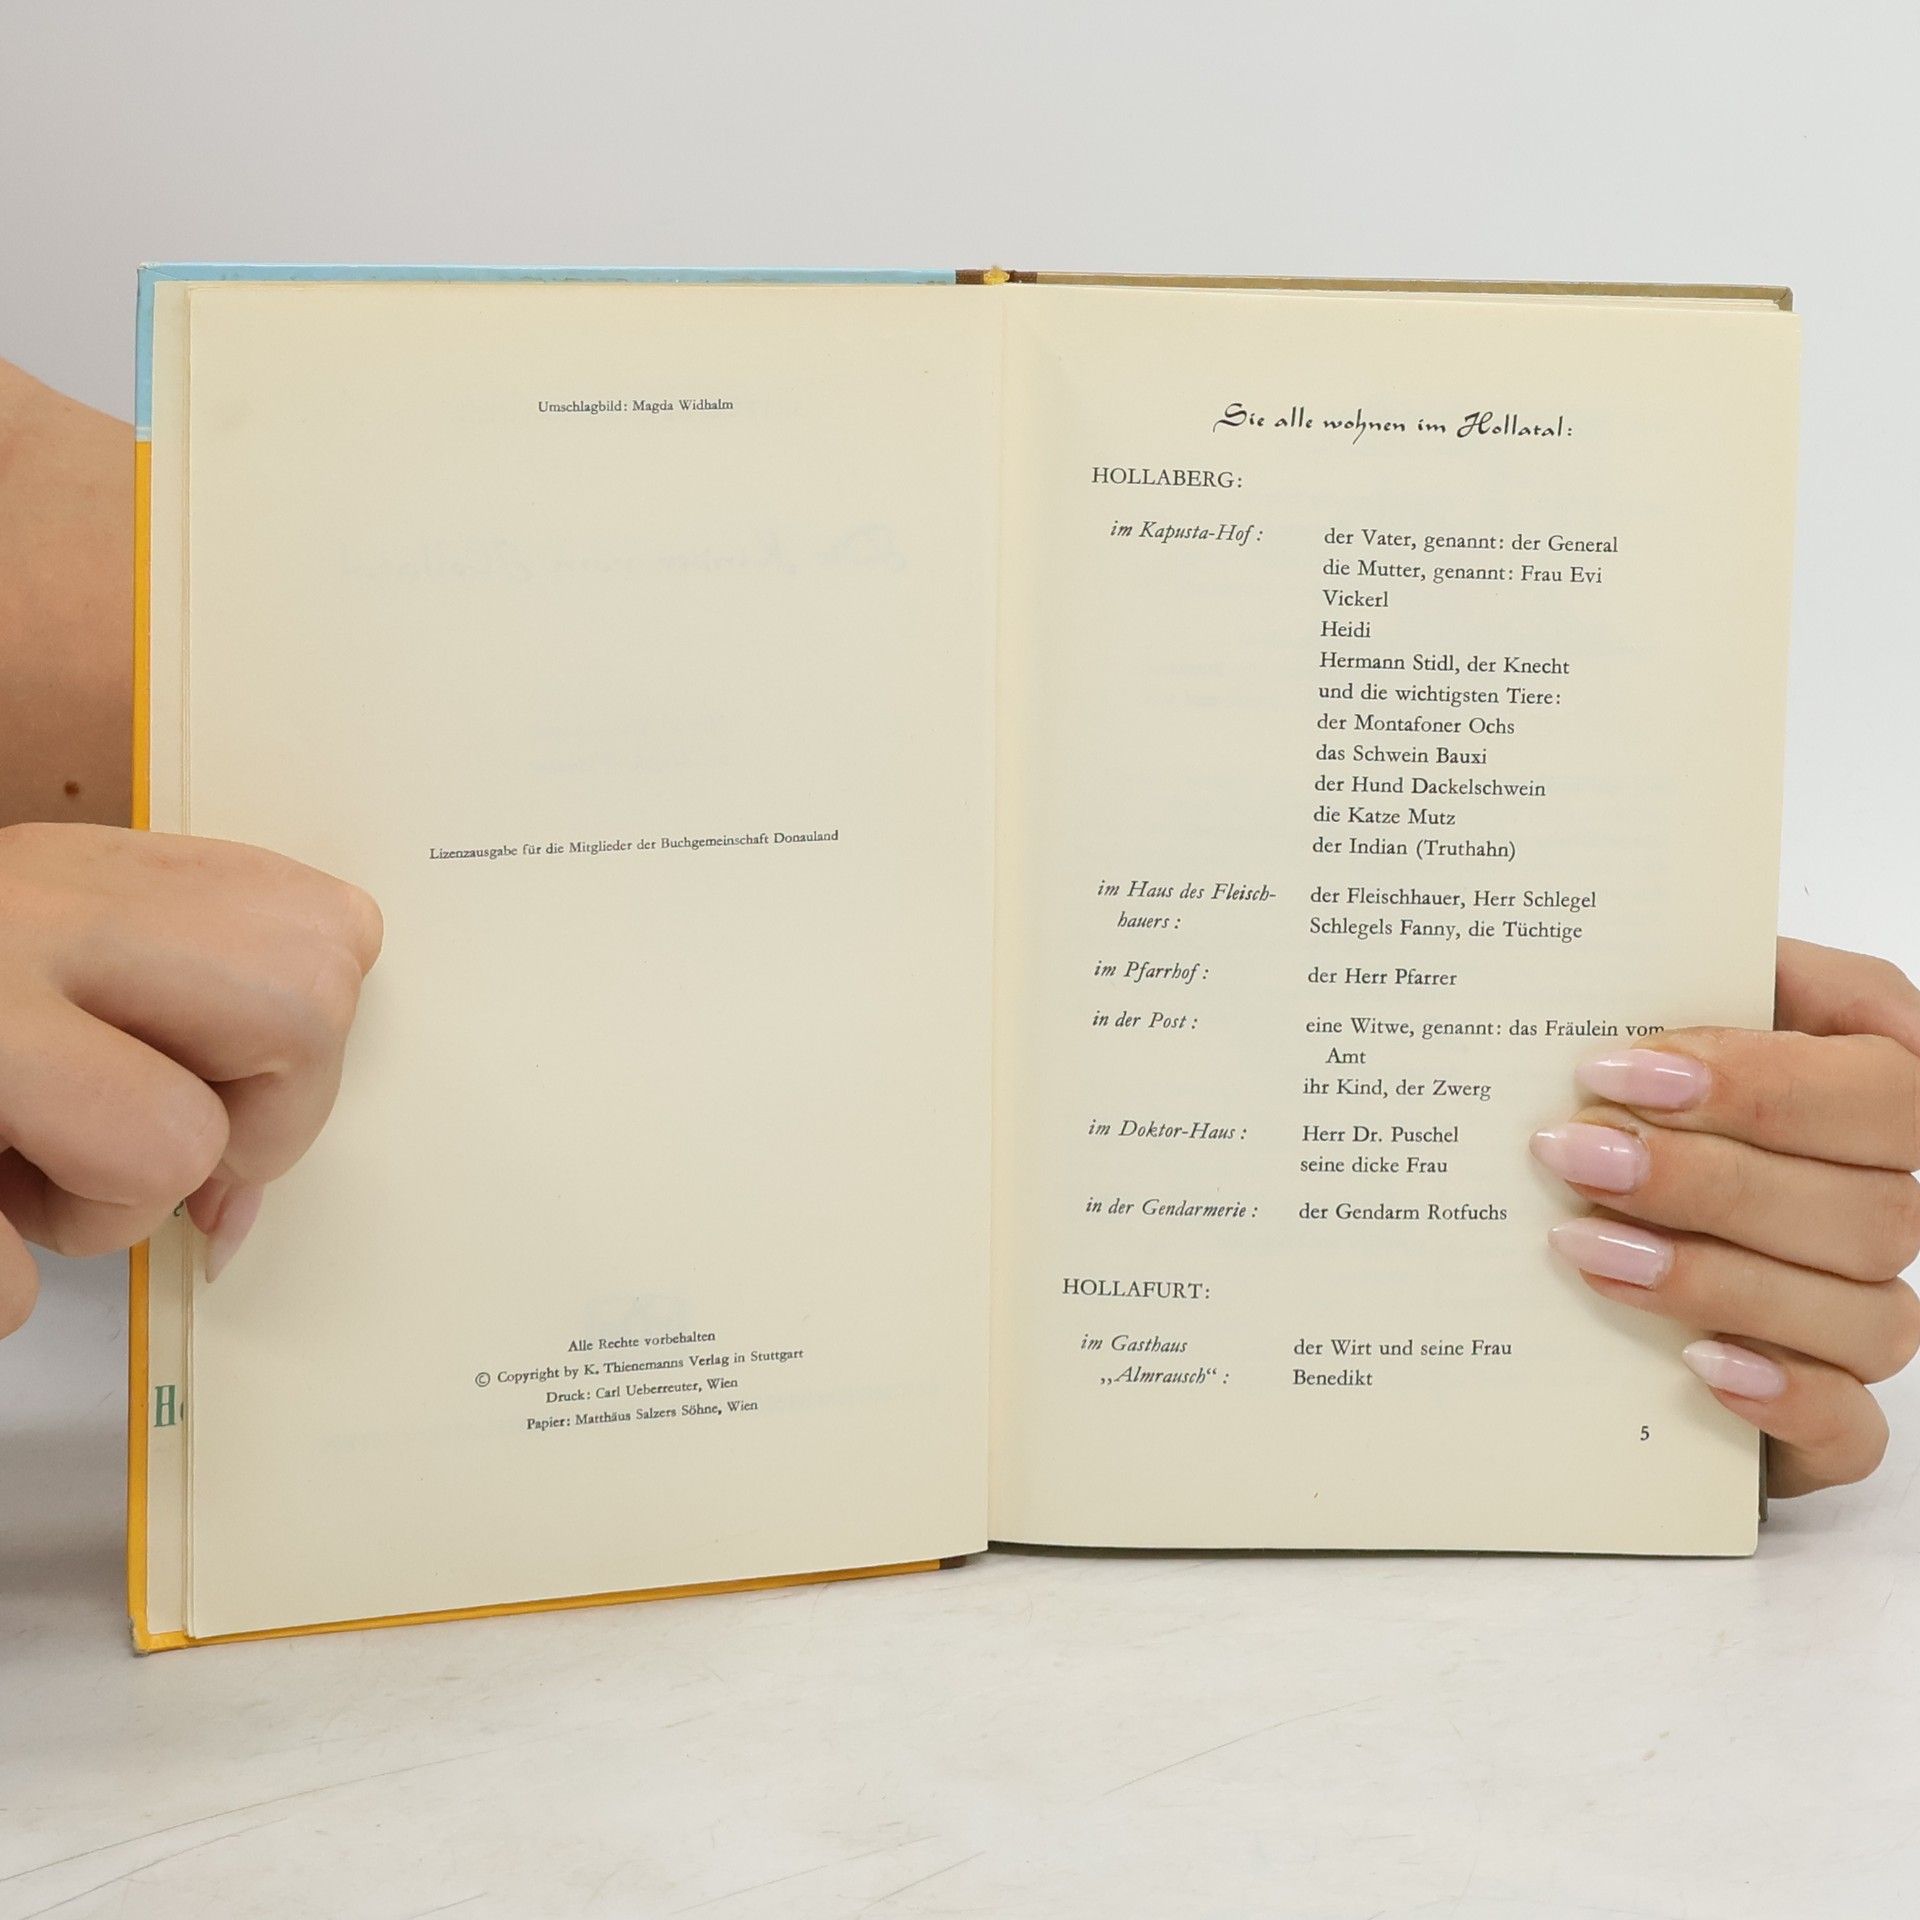 Umschlagbild: Magda Widhalm
Lizenzausgabe für die Mitglieder der Buchgemeinschaft Donauland
Alle Rechte vorbehalten
© Copyright by K. Thienemanns Verlag in Stuttgart
Druck: Carl Ueberreuter, Wien
Papier: Matthäus Salzers Söhne, Wien
Sie alle wohnen im Hollatal:
HOLLABERG:
im Kapusta-Hof: der Vater, genannt: der General
die Mutter, genannt: Frau Evi
Vickerl
Heidi
Hermann Stidl, der Knecht
und die wichtigsten Tiere:
der Montafoner Ochs
das Schwein Bauxi
der Hund Dackelschwein
die Katze Mutz
der Indian (Truthahn)
im Haus des Fleisch- der Fleischhauer, Herr Schlegel
hauers: Schlegels Fanny, die Tüchtige
im Pfarrhof: der Herr Pfarrer
in der Post: eine Witwe, genannt: das Fräulein vom
Amt
ihr Kind, der Zwerg
im Doktor-Haus: Herr Dr. Puschel
seine dicke Frau
in der Gendarmerie: der Gendarm Rotfuchs
HOLLAFURT:
im Gasthaus der Wirt und seine Frau
„Almrausch“: Benedikt
5